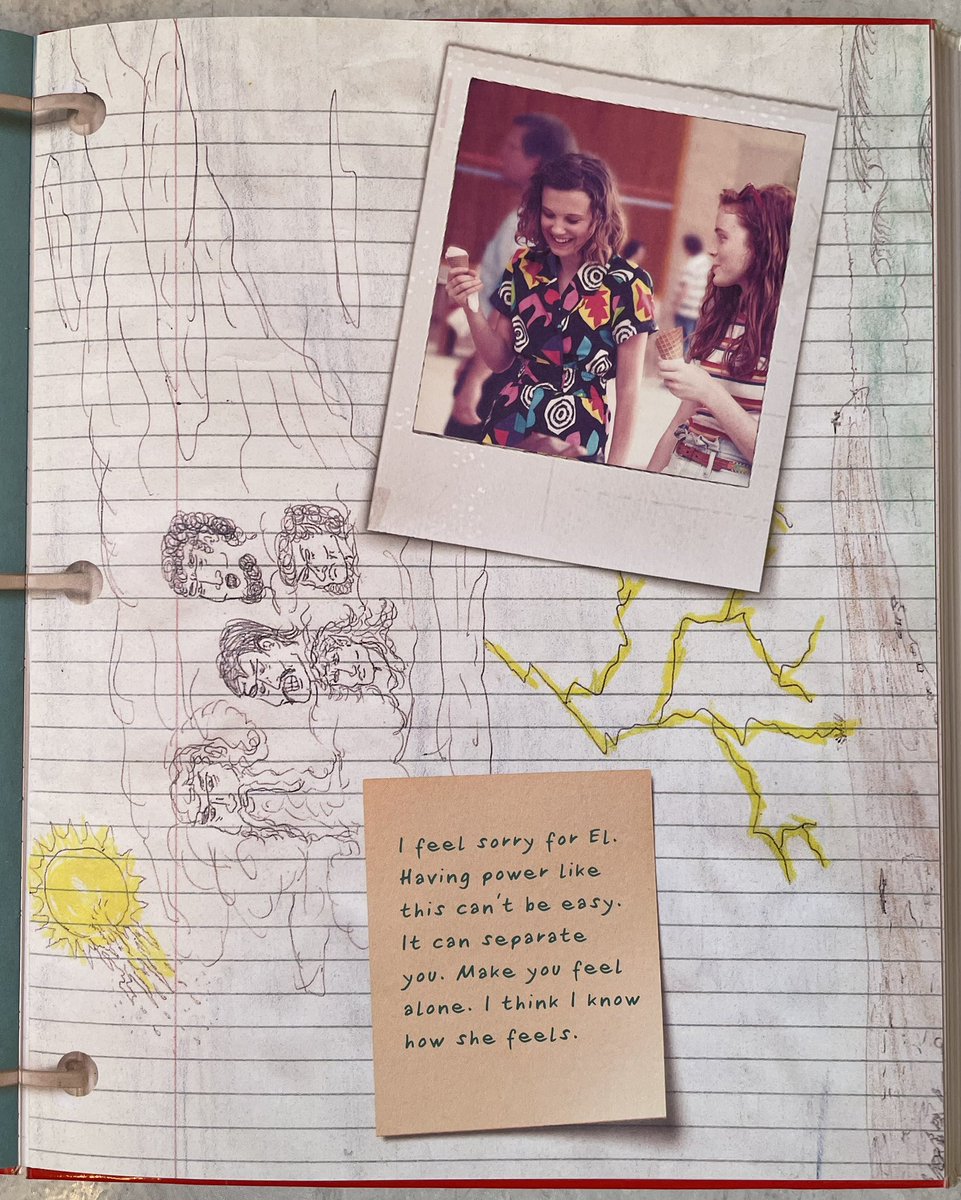 I feel sorry for El.
Having power like
this can't be easy.
It can separate
you. Make you feel
alone. I think I know
how she feels.